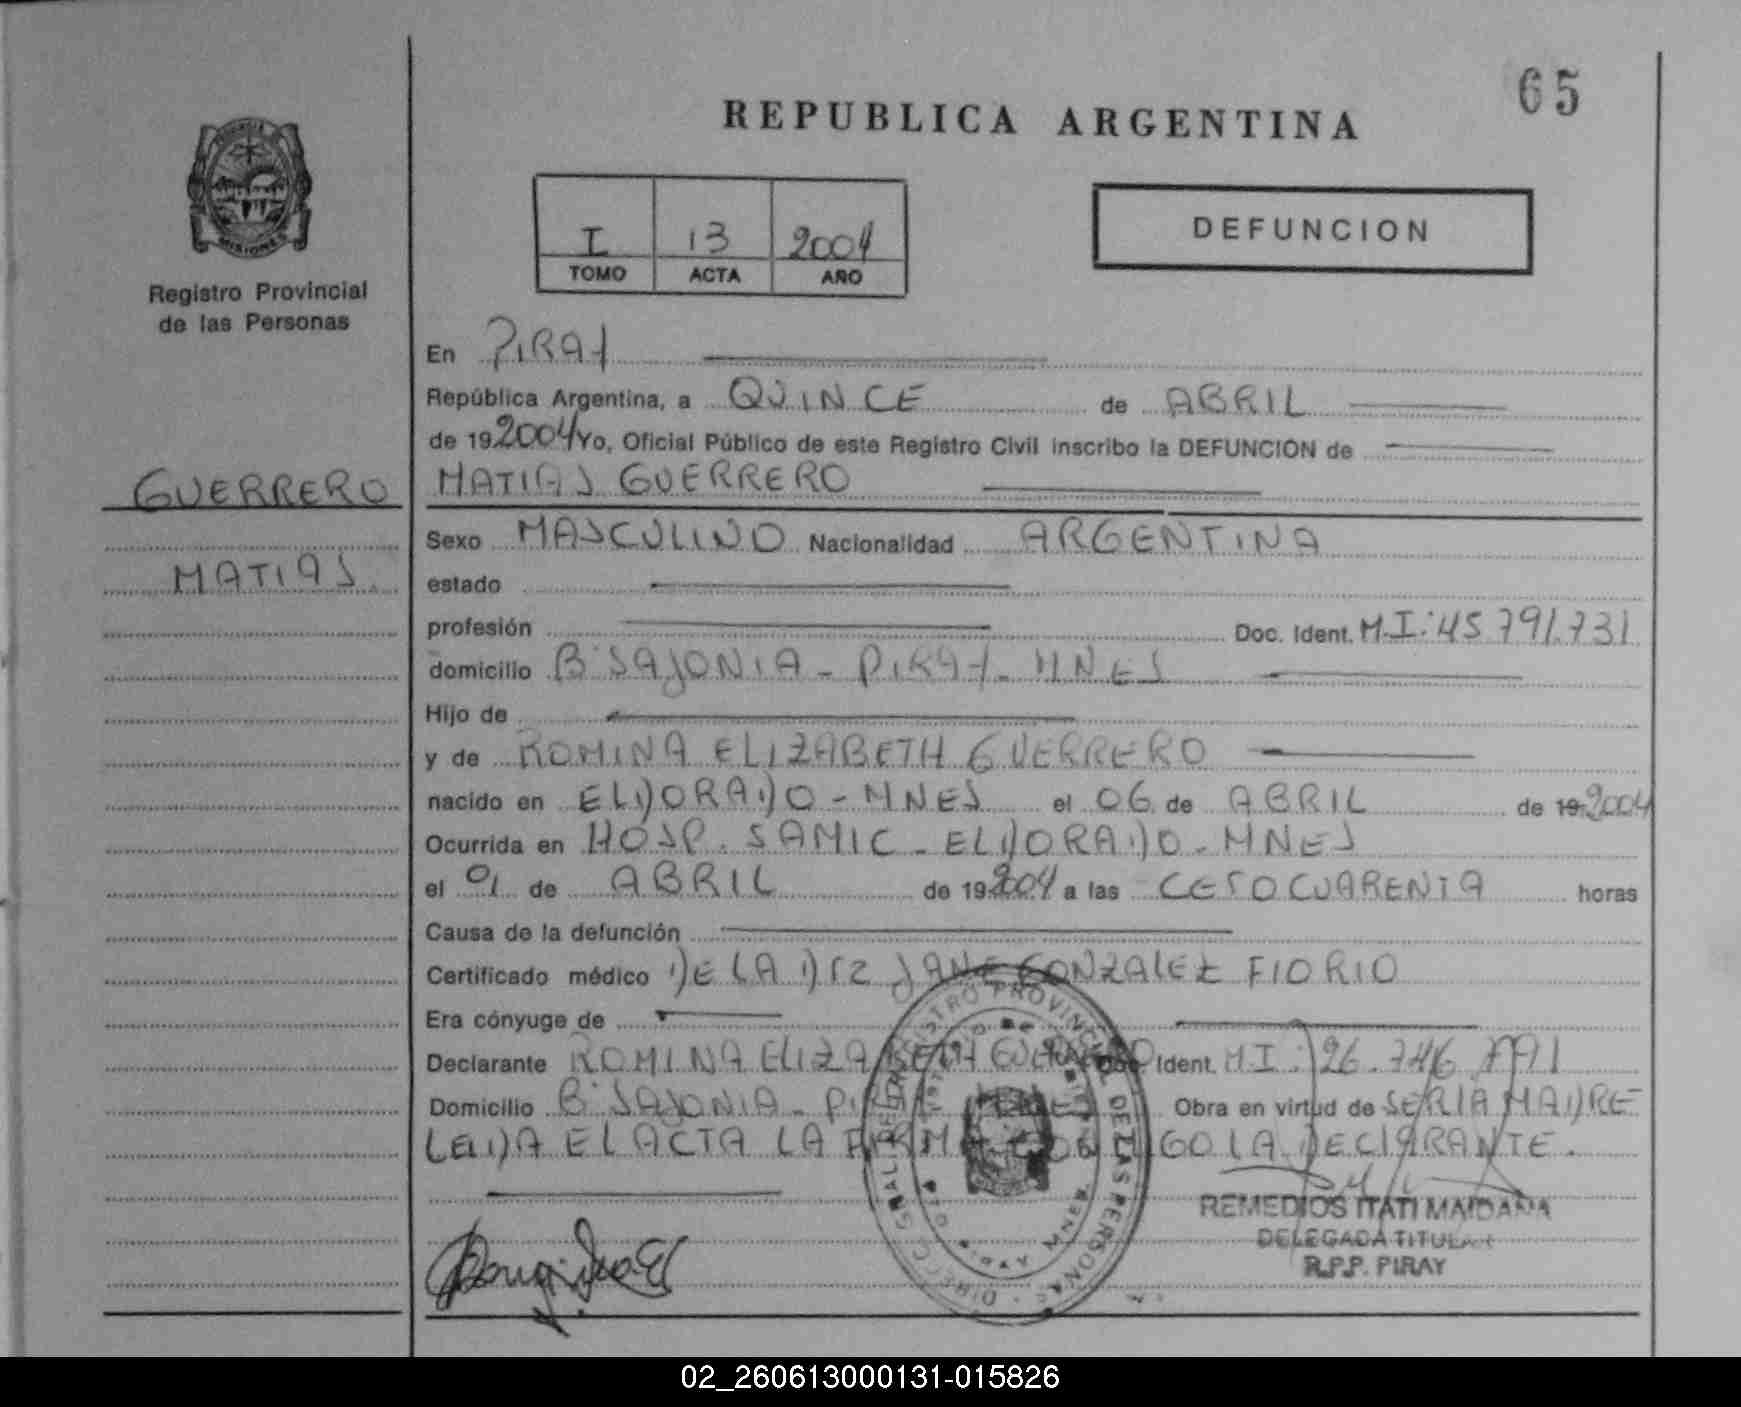 65
REPUBLICA ARGENTINA
MISIONES
Registro Provincial
de las Personas
I 13 2004
TOMO ACTA AÑO
DEFUNCION
En PIRAY
República Argentina, a QUINCE de ABRIL
de 19 2004 Yo, Oficial Público de este Registro Civil inscribo la DEFUNCION de
GUERRERO
MATIAS
MATIAS GUERRERO
Sexo MASCULINO Nacionalidad ARGENTINA
estado
profesión Doc. Ident. M.I: 45.791.731
domicilio Bº SAJONIA - PIRAY - MNES
Hijo de
y de ROMINA ELIZABETH GUERRERO
nacido en ELDORADO - MNES el 06 de ABRIL de 19 2004
Ocurrida en HOSP. SAMIC - ELDORADO - MNES
el 01 de ABRIL de 19 2004 a las CERO CUARENTA horas
Causa de la defunción
Certificado médico DE LA DRA JANE GONZALEZ FIORIO
Era cónyuge de
Declarante ROMINA ELIZABETH GUERRERO Doc. Ident. M.I:
Domicilio Bº SAJONIA - PIRAY MNES Obra en virtud de SER LA MADRE
LEIDA EL ACTA LA FIRMA CONMIGO LA DECLARANTE.
REMEDIOS ITATI MAIDANA
DELEGADA TITULAR
R.P.P. PIRAY
02_260613000131-015826